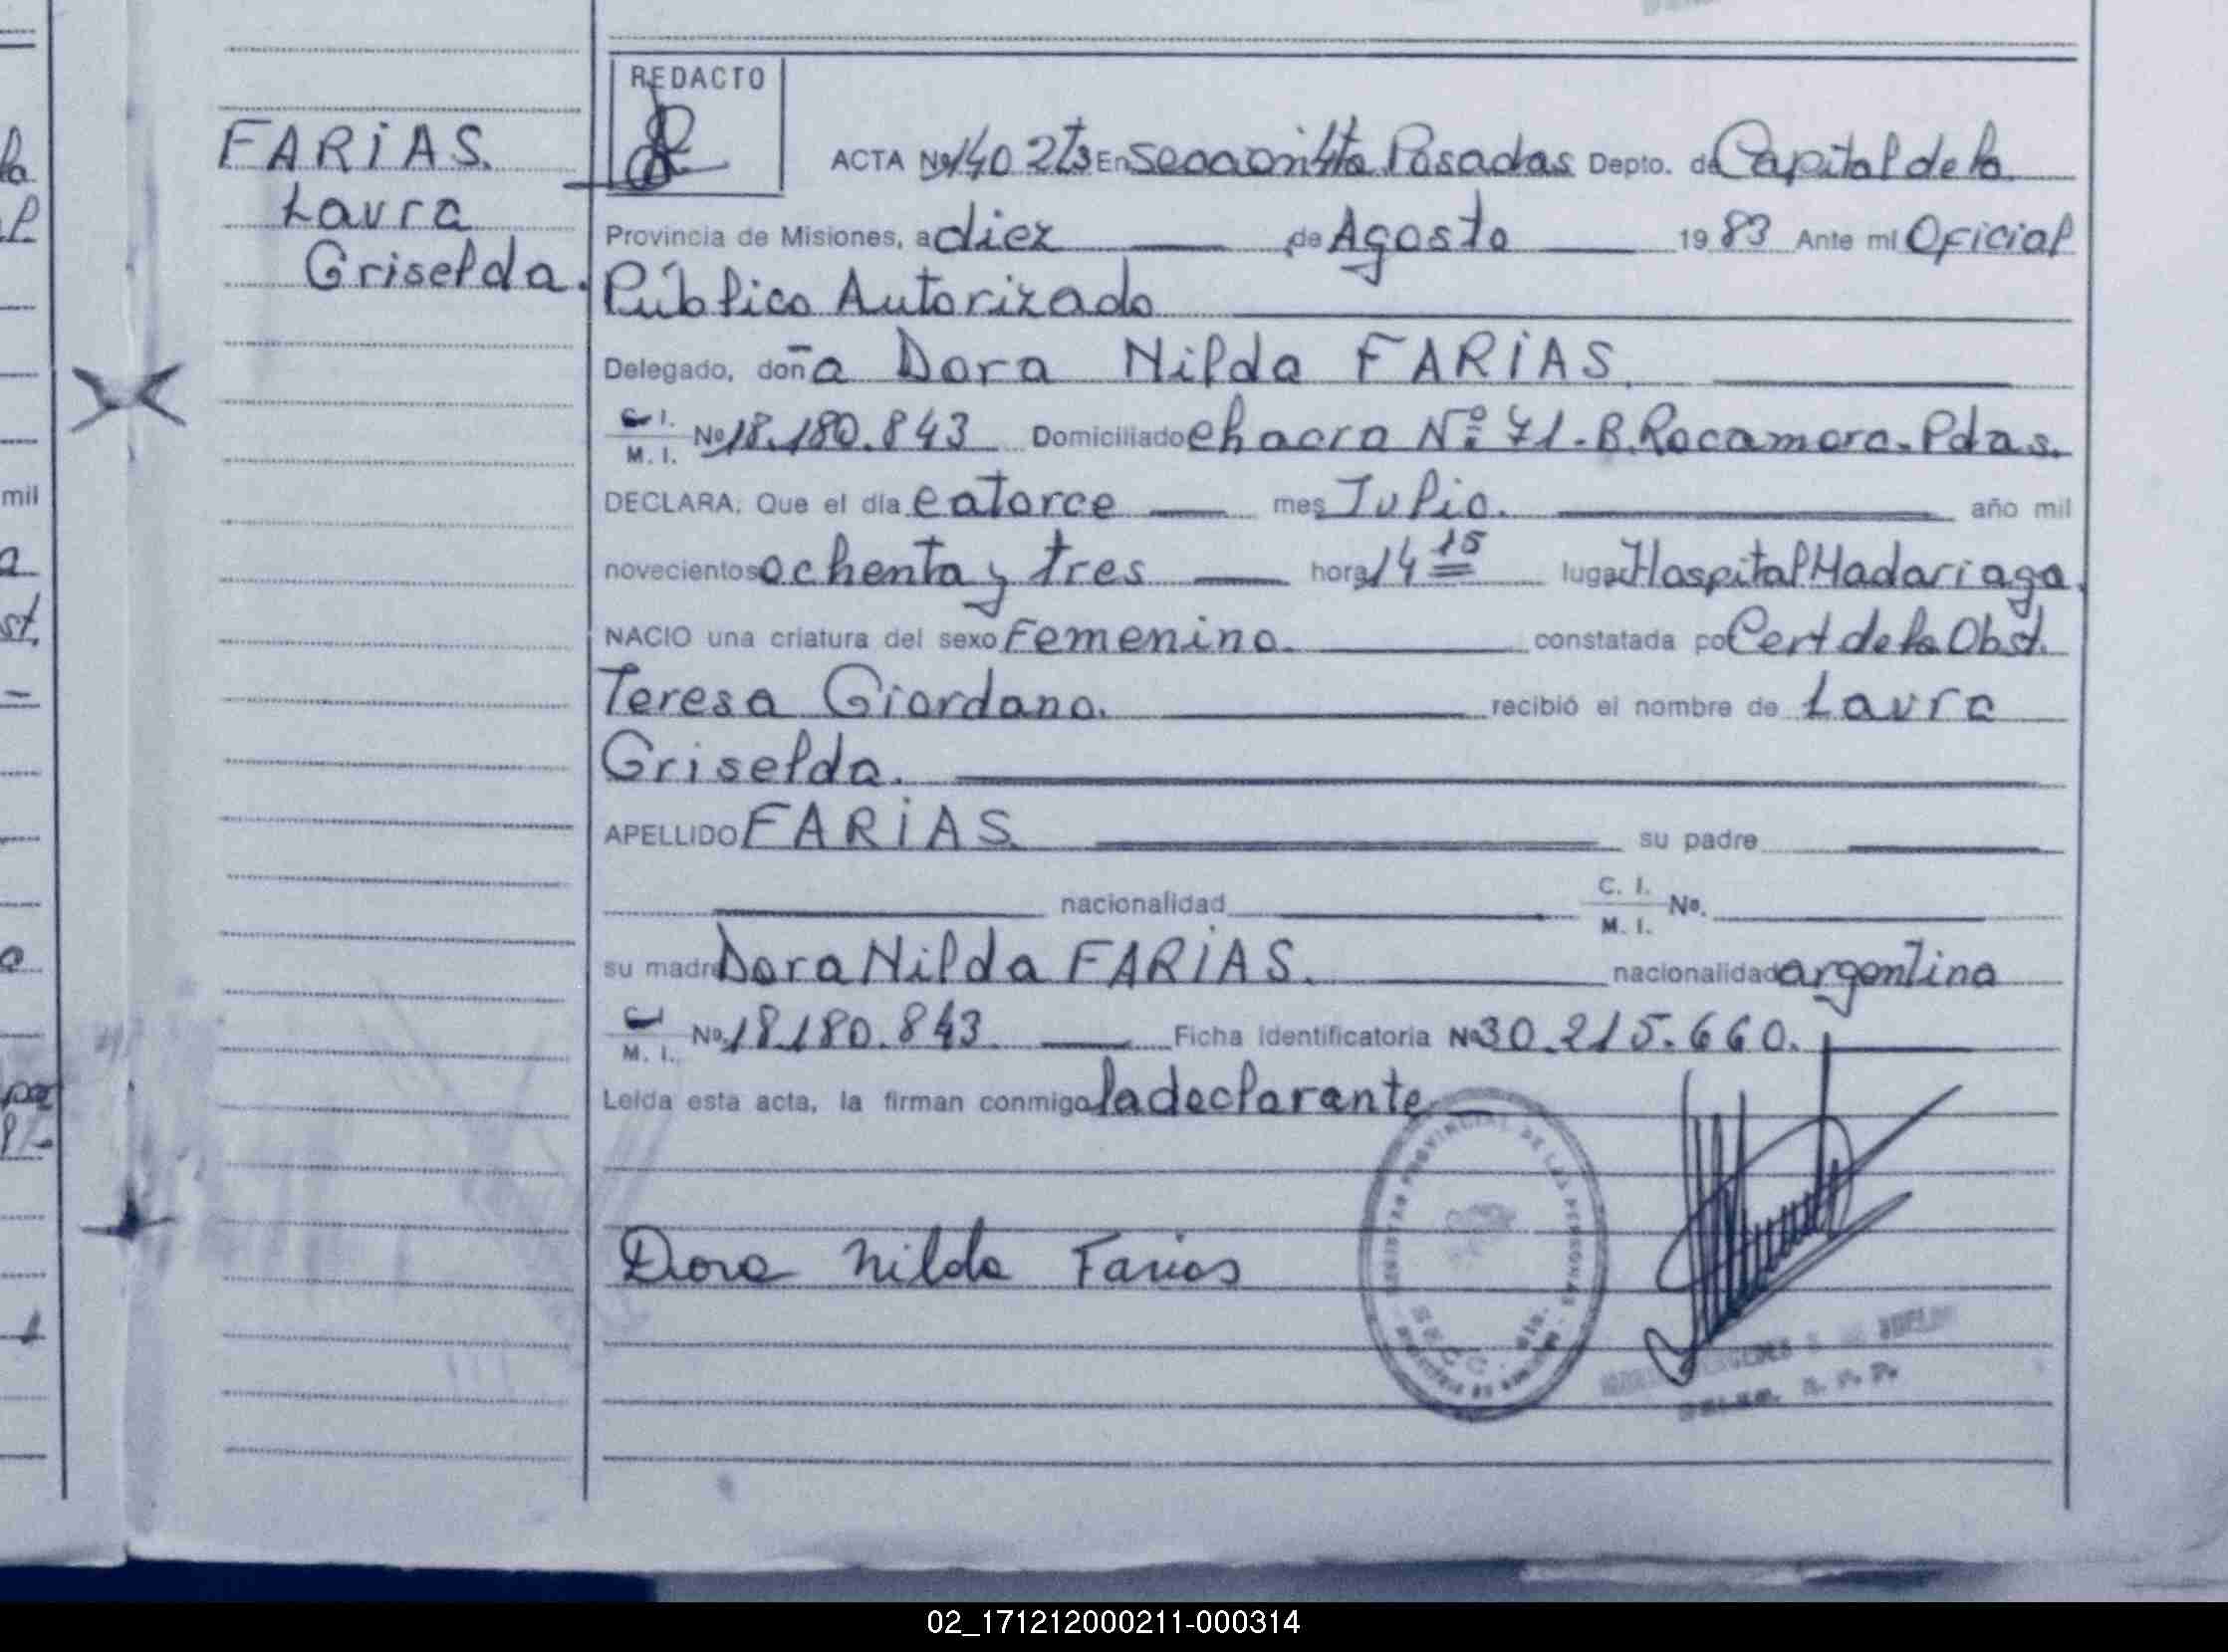 FARIAS.
Laura
Griselda.
REDACTO
ACTA Nº 140 2ts En sección 4ta Posadas Depto. de Capital de la
Provincia de Misiones, a diez de Agosto 1983 Ante mi Oficial
Público Autorizado
Delegado, doña Dora Nilda FARIAS.
C.I. M.I. Nº 18.180.843 Domiciliado chacra Nº 71-B. Rocamora-Pdas.
DECLARA: Que el día catorce mes Julio. año mil
novecientos ochenta y tres hora 14 15 lugar Hospital Madariaga.
NACIO una criatura del sexo Femenino. constatada por Cert de la Obst.
Teresa Giordano. recibió el nombre de Laura
Griselda.
APELLIDO FARIAS. su padre
nacionalidad C. I. M. I. Nº.
su madre Dora Nilda FARIAS. nacionalidad argentina
C.I. M. I. Nº 18.180.843. Ficha identificatoria Nº 30.215.660.
Leída esta acta, la firman conmigo la declarante
Dora Nilda Farias
REGISTRO PROVINCIAL DE LAS PERSONAS
mil
st.
02_171212000211-000314